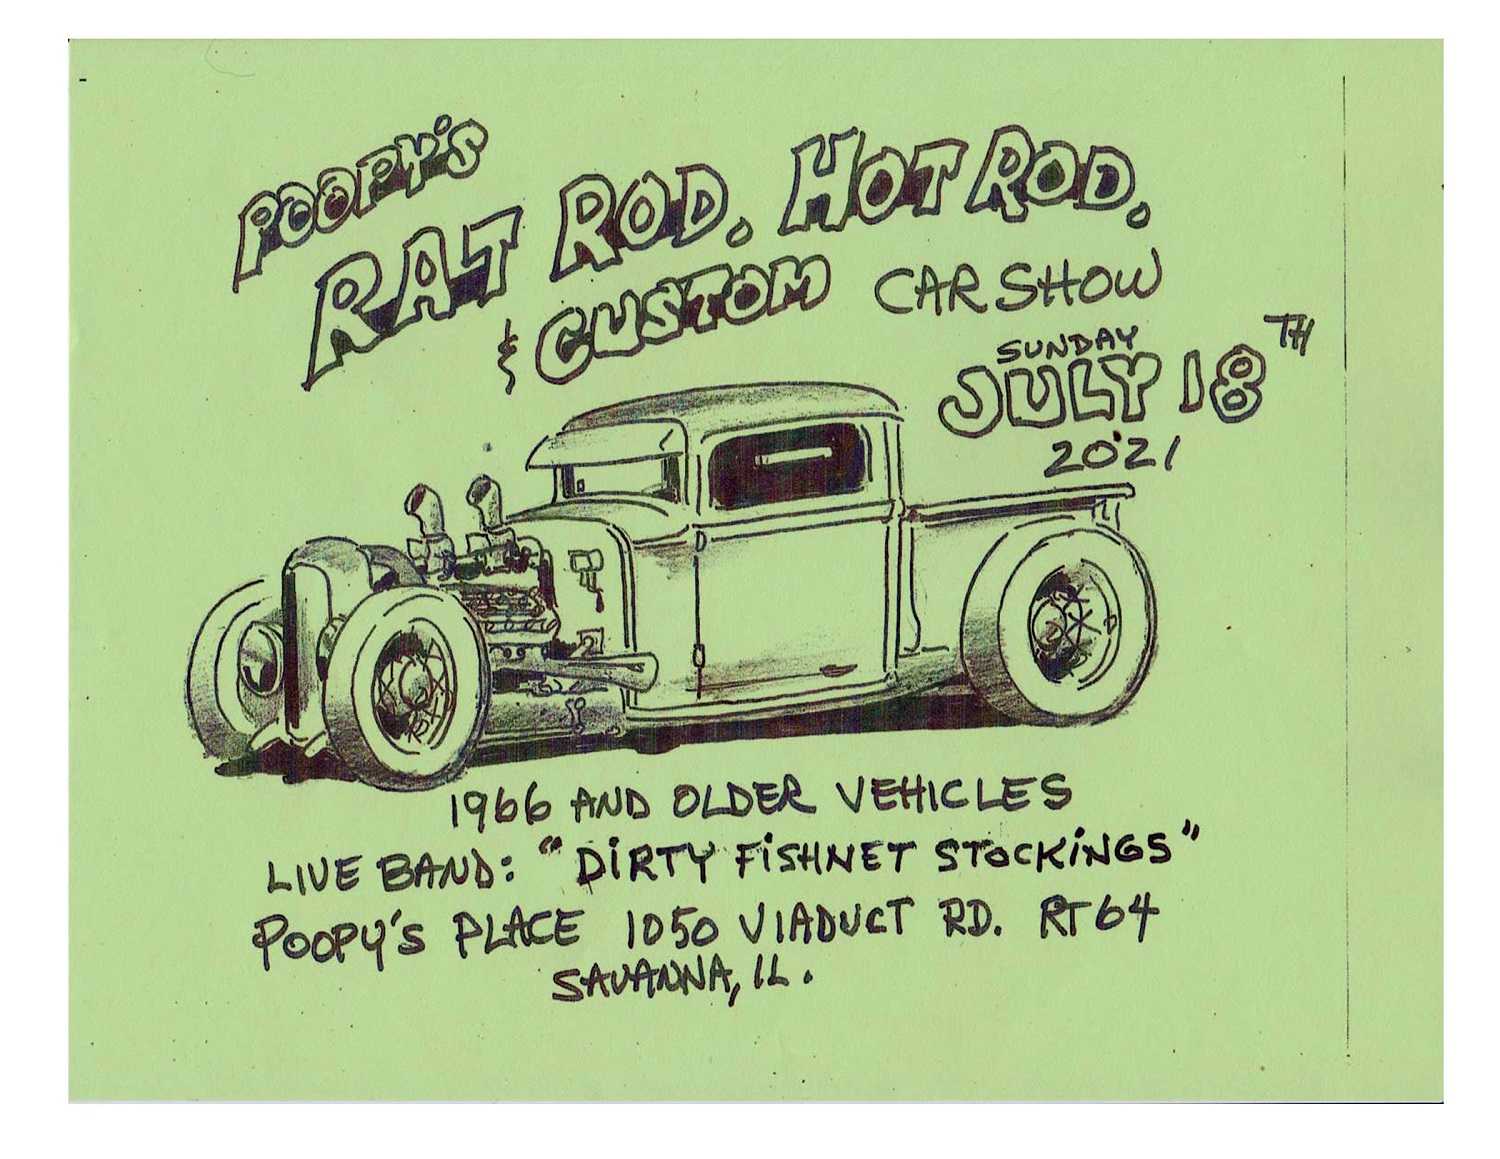 POOPY'S
RAT ROD. HOT ROD.
& CUSTOM CAR SHOW
SUNDAY
JULY 18TH
2021
1966 AND OLDER VEHICLES
LIVE BAND: "DIRTY FISHNET STOCKINGS"
POOPY'S PLACE 1050 VIADUCT RD. RT 64
SAVANNA, IL.